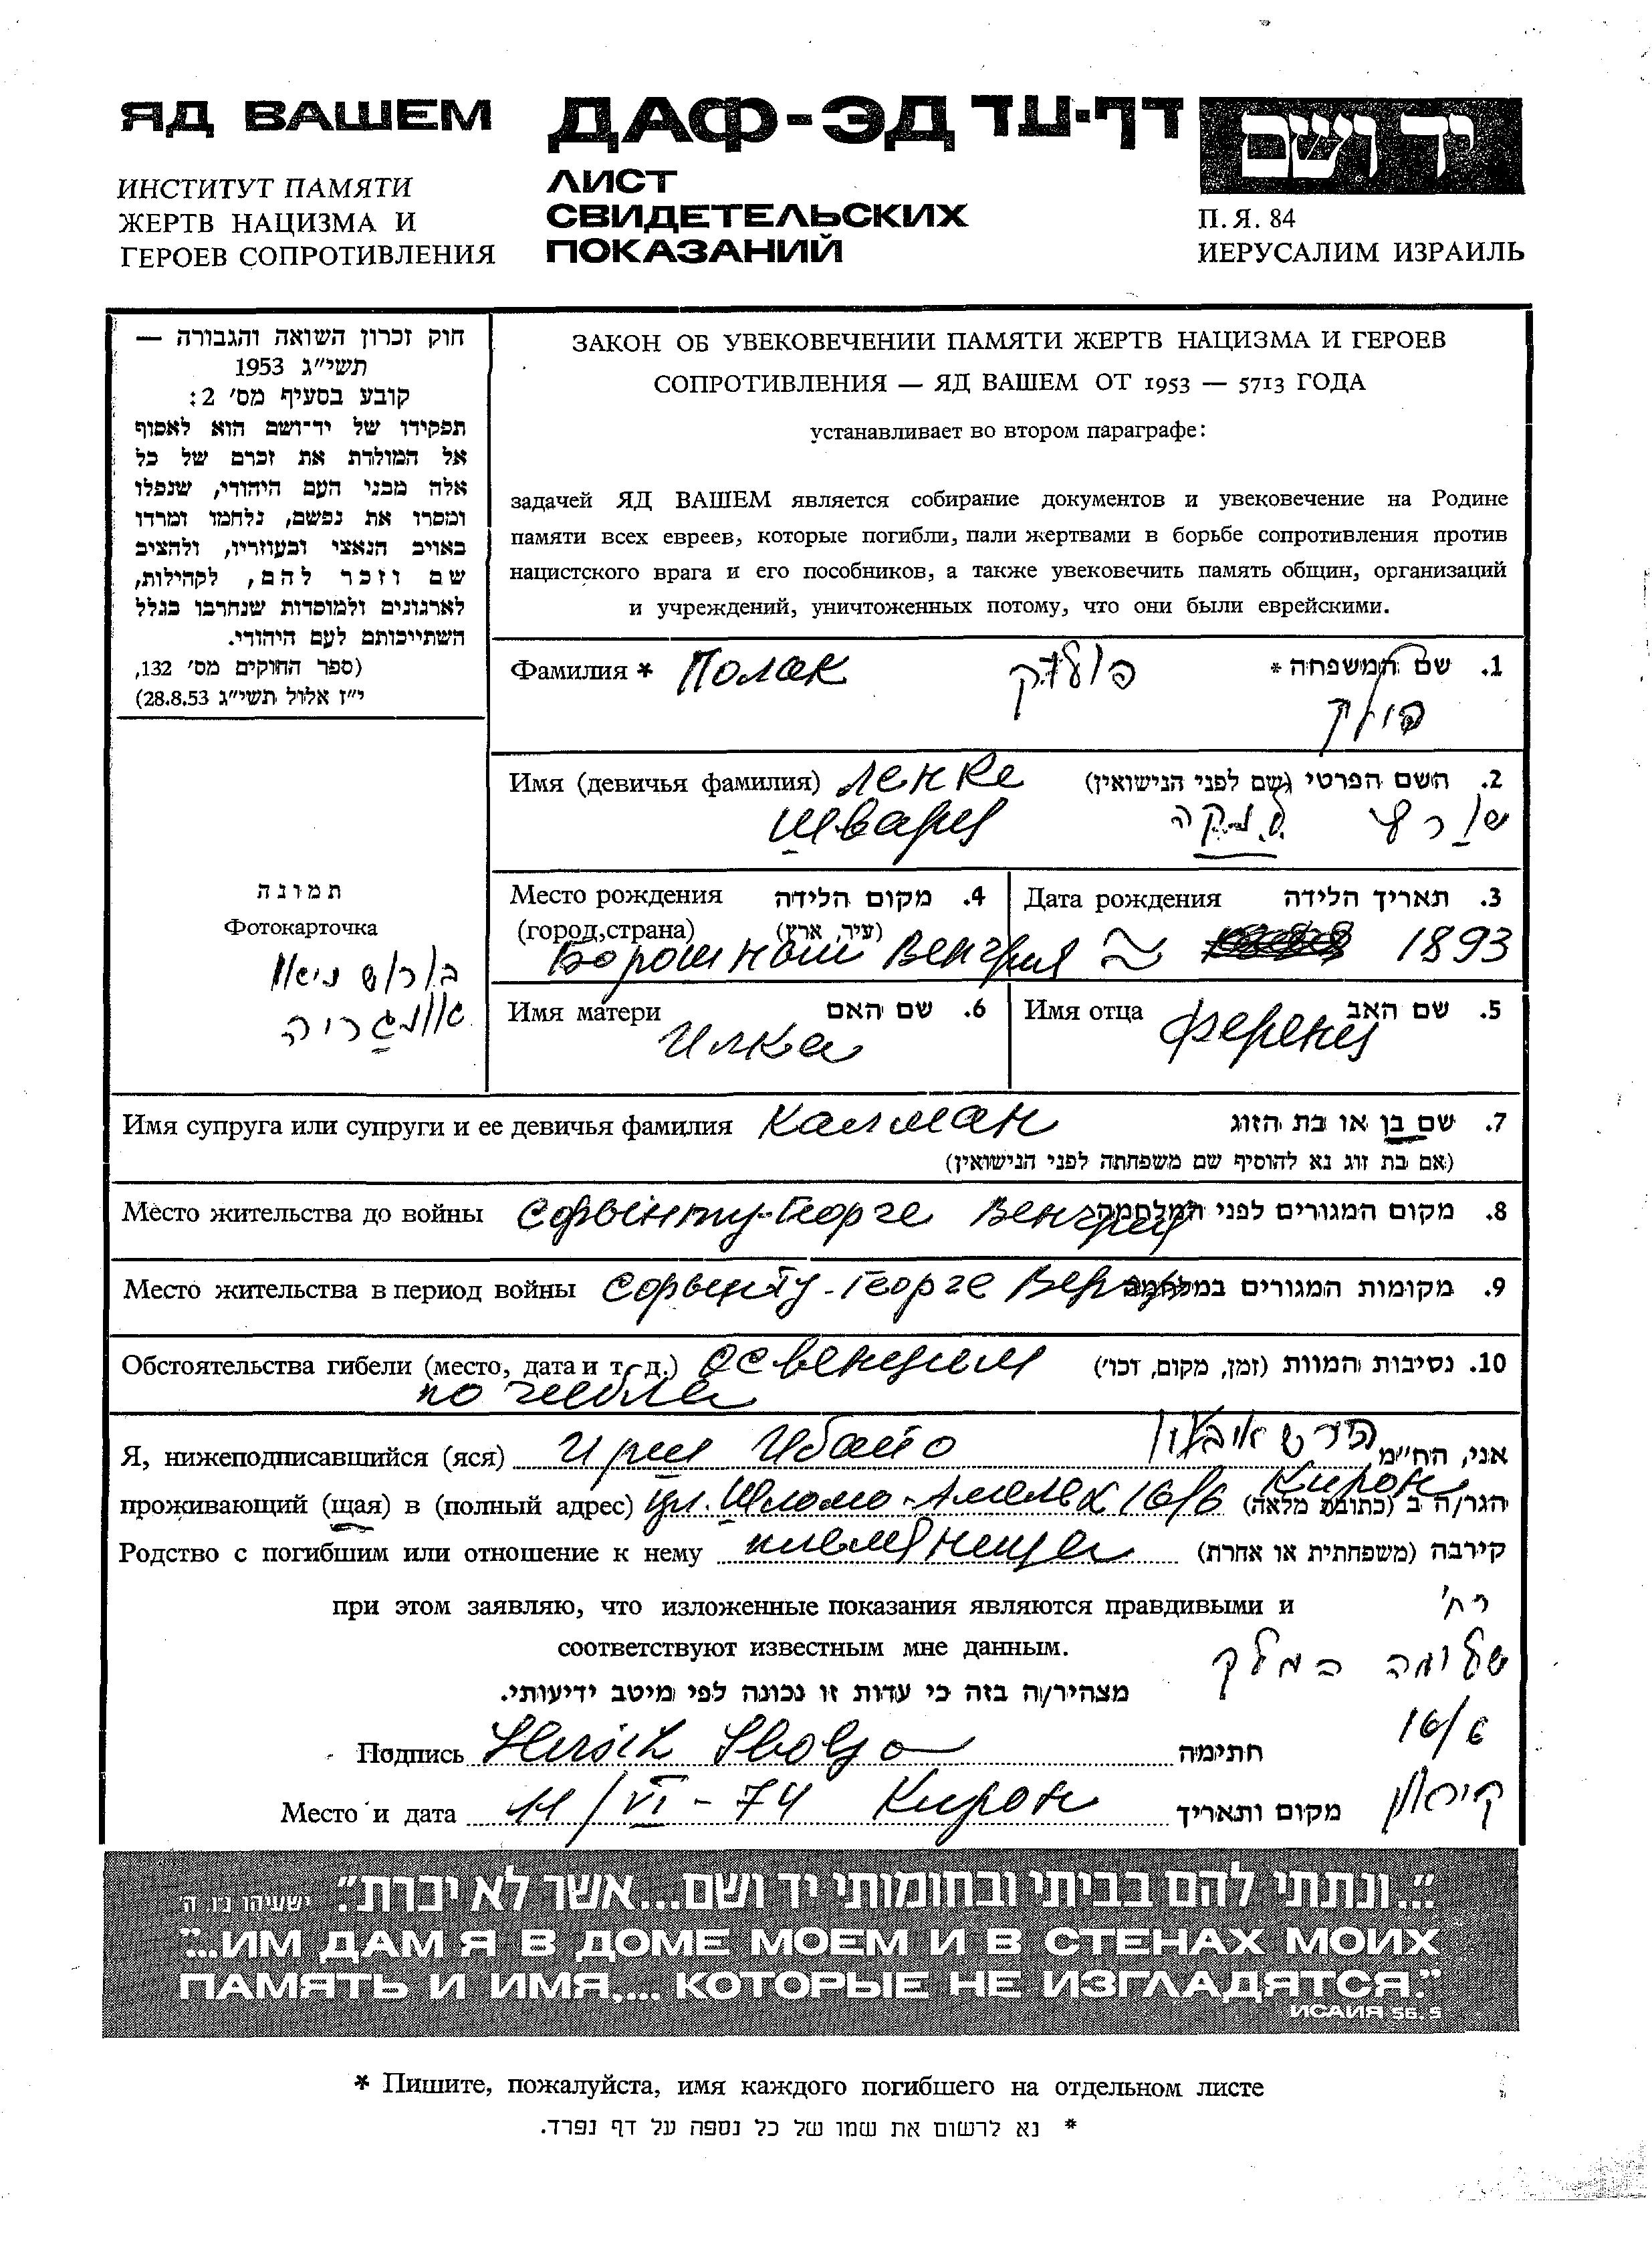 ЯД ВАШЕМ
ДАФ-ЭД דף-עד
יד ושם
ИНСТИТУТ ПАМЯТИ
ЖЕРТВ НАЦИЗМА И
ГЕРОЕВ СОПРОТИВЛЕНИЯ
ЛИСТ
СВИДЕТЕЛЬСКИХ
ПОКАЗАНИЙ
П.Я. 84
ИЕРУСАЛИМ ИЗРАИЛЬ
חוק זכרון השואה והגבורה —
תשי״ג 1953
קובע בסעיף מס׳ 2:
תפקידו של יד־ושם הוא לאסוף
אל המולדת את זכרם של כל
אלה מבני העם היהודי, שנפלו
ומסרו את נפשם, נלחמו ומרדו
באויב הנאצי ובעוזריו, ולהציב
שם וזכר להם, לקהילות,
לארגונים ולמוסדות שנחרבו בגלל
השתייכותם לעם היהודי.
(ספר החוקים מס׳ 132,
י״ז אלול תשי״ג 28.8.53)
ЗАКОН ОБ УВЕКОВЕЧЕНИИ ПАМЯТИ ЖЕРТВ НАЦИЗМА И ГЕРОЕВ
СОПРОТИВЛЕНИЯ — ЯД ВАШЕМ ОТ 1953 — 5713 ГОДА
устанавливает во втором параграфе:
задачей ЯД ВАШЕМ является собирание документов и увековечение на Родине
памяти всех евреев, которые погибли, пали жертвами в борьбе сопротивления против
нацистского врага и его пособников, а также увековечить память общин, организаций
и учреждений, уничтоженных потому, что они были еврейскими.
Фамилия * Полак פולק 1. שם המשפחה *
פולק
Имя (девичья фамилия) Ленке 2. השם הפרטי (שם לפני הנישואין)
Шварц לנקה שורץ
Место рождения 4. מקום הלידה
(город,страна) (עיר, ארץ)
Венгрия
Дата рождения 3. תאריך הלידה
≈ 1893
Имя матери 6. שם האם
Илка
Имя отца 5. שם האב
Ференц
תמונה
Фотокарточка
Имя супруга или супруги и ее девичья фамилия Калман 7. שם בן או בת הזוג
(אם בת זוג נא להוסיף שם משפחתה לפני הנישואין)
Место жительства до войны -Георге Венгрия 8. מקום המגורים לפני המלחמה
Место жительства в период войны -Георге Венгр 9. מקומות המגורים במלחמה
Обстоятельства гибели (место, дата и т. д.) Освенцим 10. נסיבות המוות (זמן, מקום, וכו׳)
погибла
Я, нижеподписавшийся (яся) Ибойо אני, הח״מ הירש
проживающий (щая) в (полный адрес) ул. Шломо-Амелех 16/6 Кирон הגר/ה ב (כתובת מלאה)
Родство с погибшим или отношение к нему племяница קירבה (משפחתית או אחרת)
при этом заявляю, что изложенные показания являются правдивыми и
соответствуют известным мне данным.
מצהיר/ה בזה כי עדות זו נכונה לפי מיטב ידיעותי.
רח׳
שלומה המלך
16/6
קירון
Подпись Hersch Ibolya חתימה
Место и дата 11/VI-74 Кирон מקום ותאריך
״...ונתתי להם בביתי ובחומותי יד ושם...אשר לא יכרת״. ישעיהו נ״ו, ה׳
"...ИМ ДАМ Я В ДОМЕ МОЕМ И В СТЕНАХ МОИХ
ПАМЯТЬ И ИМЯ,... КОТОРЫЕ НЕ ИЗГЛАДЯТСЯ."
ИСАИЯ 56.5
* Пишите, пожалуйста, имя каждого погибшего на отдельном листе
* נא לרשום את שמו של כל נספה על דף נפרד.